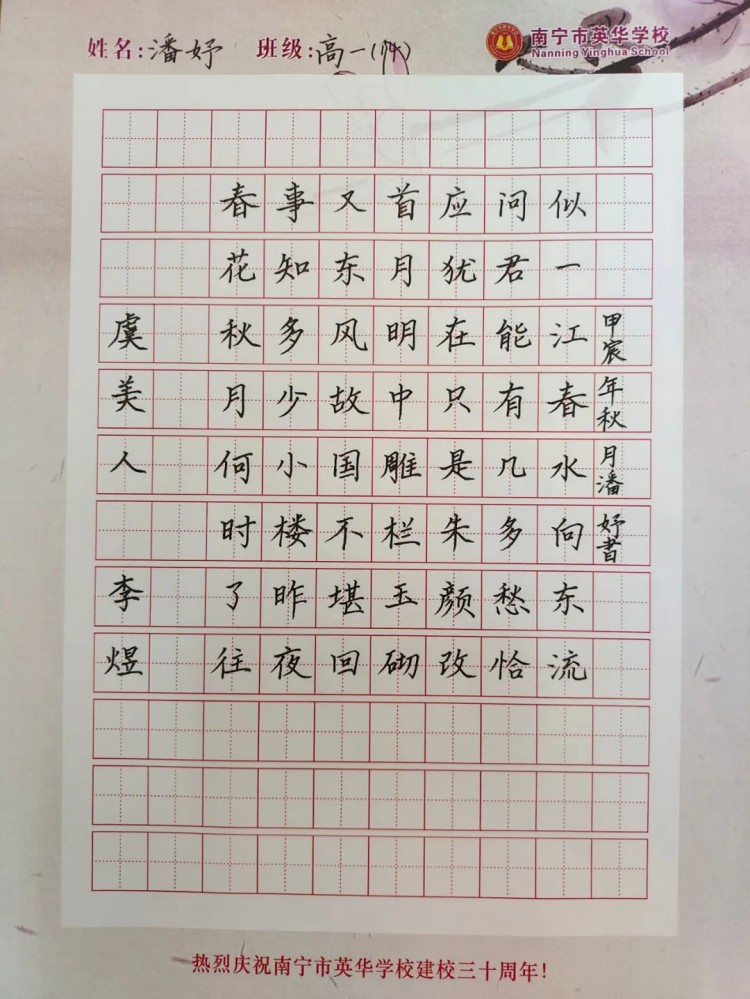 姓名:潘妤 班级:高一
南宁市英华学校
Nanning Yinghua School
虞美人 李煜
春花秋月何时了往
事知多少小楼昨夜
又东风故国不堪回
首月明中雕栏玉砌
应犹在只是朱颜改
问君能有几多愁恰
似一江春水向东流
甲宸年秋月潘妤书
热烈庆祝南宁市英华学校建校三十周年!